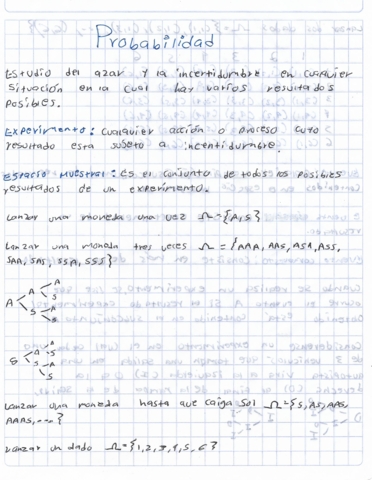 Probabilidad
Estudio del azar y la incertidumbre en cualquier
situación en la cual hay varios resultados
posibles.
Experimento: cualquier acción o proceso cuyo
resultado esta sujeto a incertidumbre.
Espacio Muestral: Es el conjunto de todos los posibles
resultados de un experimento.
Lanzar una moneda una vez Ω = {A,S}
Lanzar una moneda tres veces Ω = {AAA, AAS, ASA, ASS,
SAA, SAS, SSA, SSS}
A A A
S
S A
S
S A A
S
S A
S
Lanzar una moneda hasta que caiga Sol Ω={S, AS, AAS,
AAAS, ...}
Lanzar un dado Ω={1,2,3,4,5,6}